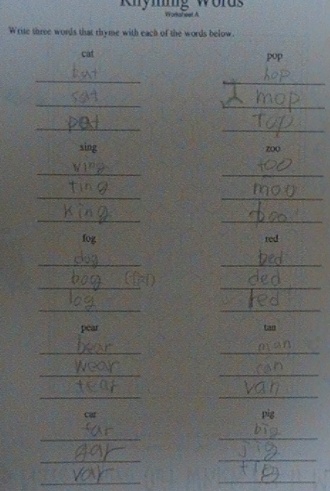 Rhyming Words
Worksheet A
Write three words that rhyme with each of the words below.
cat
bat
sat
pat
sing
wing
ting
king
fog
dog
bog
log
pear
bear
wear
tear
car
far
gar
var
pop
hop
mop
Top
zoo
too
moo
boo
red
bed
ded
fed
tan
man
can
van
pig
big
jig